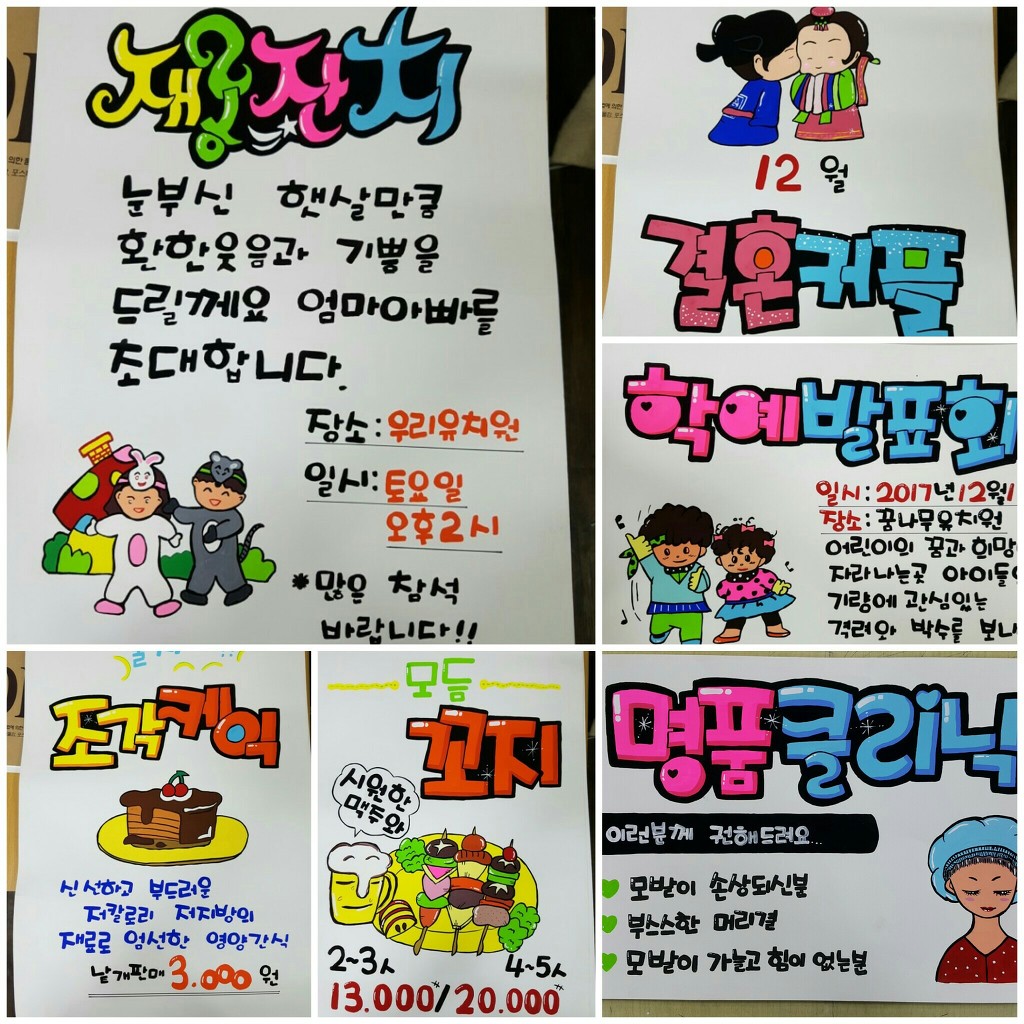 재롱잔치
눈부신 햇살만큼
환한웃음과 기쁨을
드릴께요 엄마아빠를
초대합니다.
장소:우리유치원
일시:토요일
오후2시
*많은 참석
바랍니다!!
12 월
결혼커플
학예발표회
일시:2017년12월1
장소:꿈나무유치원
어린이의 꿈과 희망
자라나는곳 아이들
기량에 관심있는
격려와 박수를 보내
조각케익
신선하고 부드러운
저칼로리 저지방의
재료로 엄선한 영양간식
낱개판매 3.000원
모듬
꼬지
시원한
맥주와
2~3人 4~5人
13.000/20.000
명품클리닉
이런분께 권해드려요...
모발이 손상되신분
부스스한 머리결
모발이 가늘고 힘이 없는분